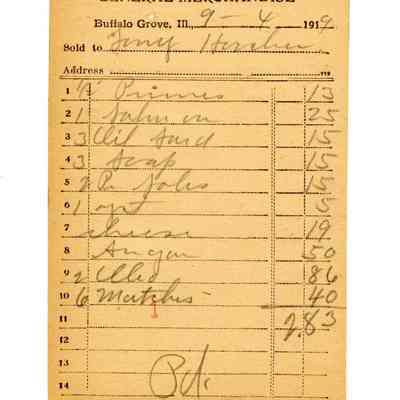 GENERAL MERCHANDISE
Buffalo Grove, Ill., 9-4 1919
Sold to Tony
Address
1 Prunes 13
2 1 Salmon 25
3 3 Oil Sard 15
4 3 Soap 15
5 2 Pr Soles 15
6 1 5
7 cheese 19
8 Sugar 50
9 2 Oleo 86
10 6 Matches 40
11 2.83
12
13 Pd.
14